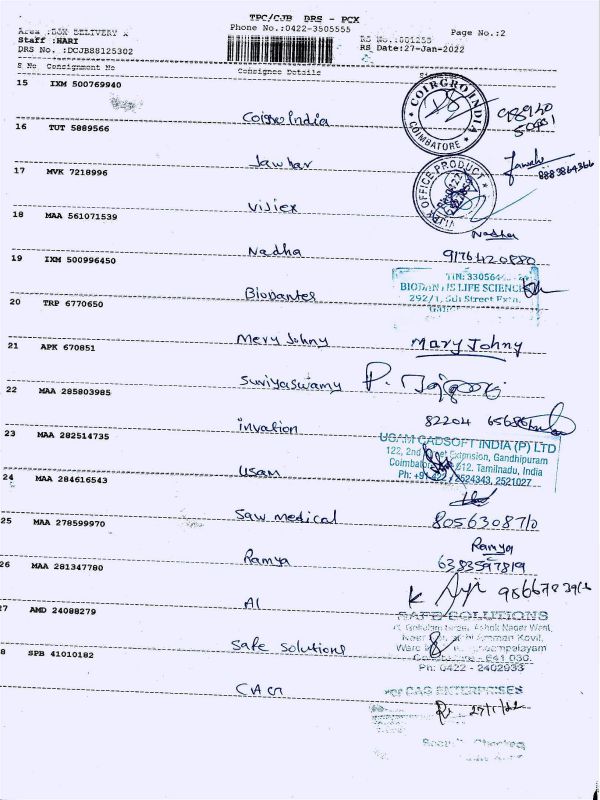 TPC/CJB DRS - PCX
Area :BOX DELIVERY
Phone No.:0422-3505555
Page No.:2
Staff :HARI
DRS No. :DCJB88125302
RS Date:27-Jan-2022
S No Consignment No
Consignee Details
15 IXM 500769940
CoigroIndia
COIRGRO INDIA
COIMBATORE
16 TUT 5889566
Jawhar
8883864366
17 MVK 7218996
Visiex
OFFICE PRODUCT
18 MAA 561071539
Nadha
Nadha
9176420880
19 IXM 500996450
Biodantes
TIN: 330564
BIODANTIS LIFE SCIENCES
292/1, 5th Street Extn.
20 TRP 6770650
Mery Johny
Mary Johny
21 APK 670851
Suriyaswamy
22 MAA 285803985
invation
82204 65686
23 MAA 282514735
USam
USAM CADSOFT INDIA (P) LTD
122, 2nd Street Extension, Gandhipuram
Coimbatore 612. Tamilnadu, India
Ph: +91 422 2524343, 2521027
24 MAA 284616543
Saw medical
8056308710
25 MAA 278599970
Ramya
Ramya
6383597819
26 MAA 281347780
Al
27 AMD 24088279
Safe Solutions
SAFE SOLUTIONS
Ashok Nagar West,
Amman Kovil,
641 030.
Ph: 0422 - 2402933
8 SPB 41010182
CAG
For CAG ENTERPRISES
27/1/22